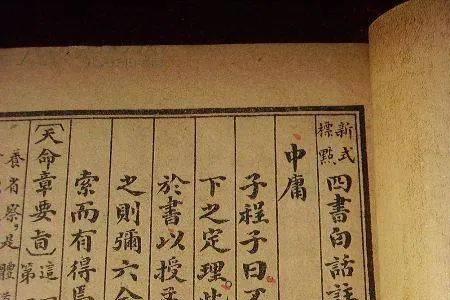 新式
標點
四書白話註
中庸
子程子曰不
下之定理此
於書以授
之則彌六合
索而有得焉
〔天命章要旨〕這
第
養省察，是體